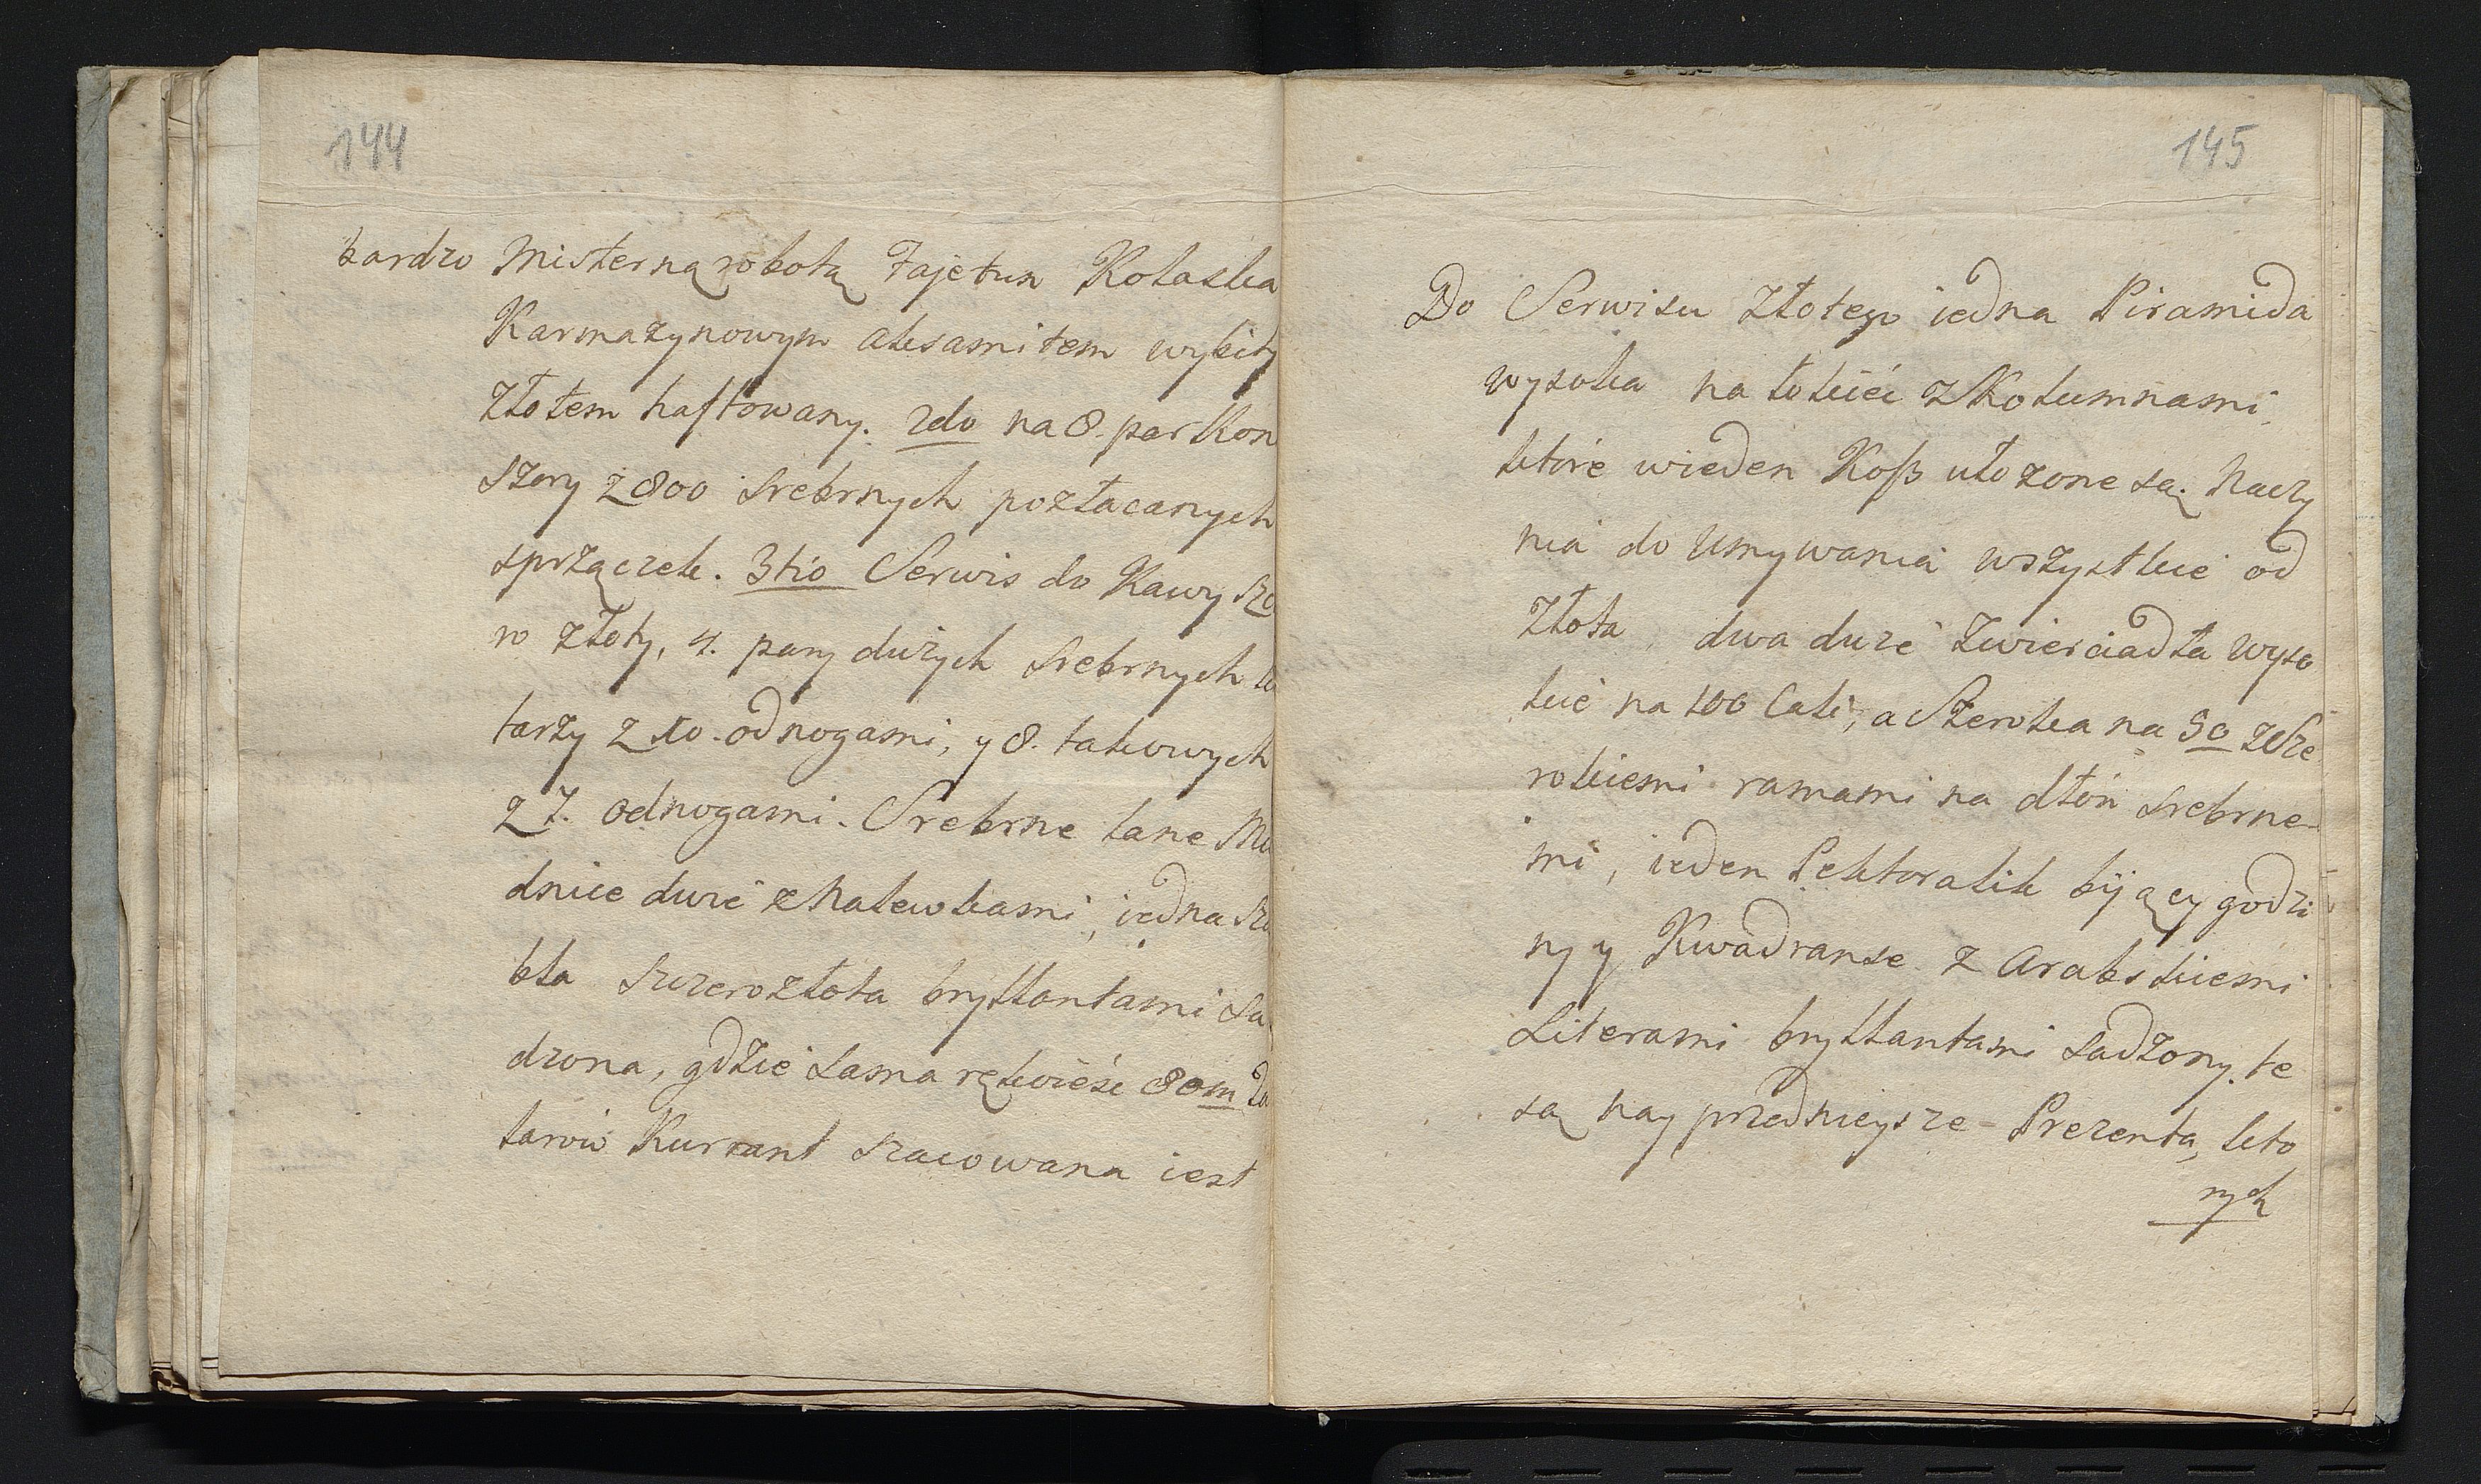 144
bardzo Misterną robotą Fajeton Kolaska
Karmazynowym aksamitem wybity
złotem haftowany. 2do na 8. par kon
szory z 800 srebrnych pozłacanych
sprzączek. 3tio Serwis do Kawy szc
ro złoty, 4. pary dużych srebrnych
tarzy z 10. odnogami, y 8. takowych
z 7. odnogami. Srebrne lane Mi
dnice duże z Nalewkami, iedna sza
bla szczerozłota bryllantami sa
dzona, gdzie sama rękoieść 80m ta
larów Kurrant szacowana iest
145
Do Serwisu złotego iedna Piramida
wysoka na łokieć z Kolumnami,
które wieden Kosz ułozone są. Naczy
nia do Umywania wszystkie od
złota, dwa duze zwierciadła wyso
kie na 100 Cali, a Szeroka na 50 z Sze
rokiemi ramami na dłoń srebrne-
mi, ieden Pektoralik bijący godzi
ny y Kwadranse z Arabskiemi
Literami bryllantami sadzony. te
są nayprzednieysze Prezenta, kto
rych